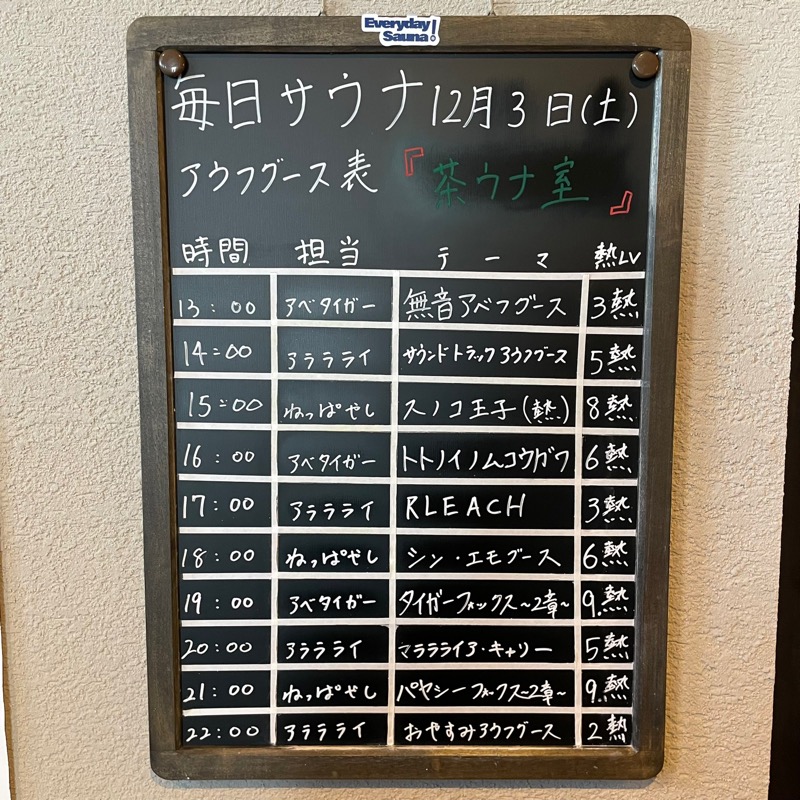 Everyday
Sauna!
毎日サウナ 12月3日(土)
アウフグース表 『茶ウナ室』
時間 担当 テーマ 熱LV
13:00 アベタイガー 無音アベフグース 3熱
14:00 アララライ サウンドトラックアウフグース 5熱
15:00 ねっぱやし スノコ王子(熱) 8熱
16:00 アベタイガー トトノイノムコウガワ 6熱
17:00 アララライ RLEACH 3熱
18:00 ねっぱやし シン・エモグース 6熱
19:00 アベタイガー タイガーフォックス~2章~ 9熱
20:00 アララライ マララライア・キャリー 5熱
21:00 ねっぱやし パヤシーフォックス~2章~ 9熱
22:00 アララライ おやすみアウフグース 2熱